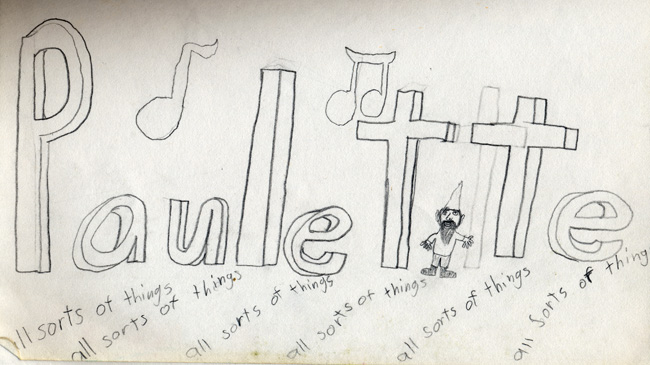 Paulette
all sorts of things
all sorts of things
all sorts of things
all sorts of things
all sorts of things
all sorts of thing